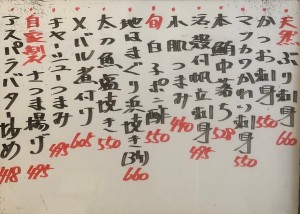 天然 ぶり刺身 660
かつお刺身 550
マツカワかれい刺身 550
本鮪中落ち 528
活〆殻付帆立刺身 495
水肌つまみ 440
旬 白子ポン酢 550
地はまぐり浜焼き(3ケ) 660
太刀魚塩焼き 550
メバル煮付け 605
チャーシューつまみ 495
自家製 さつま揚げ 495
アスパラバター炒め 418